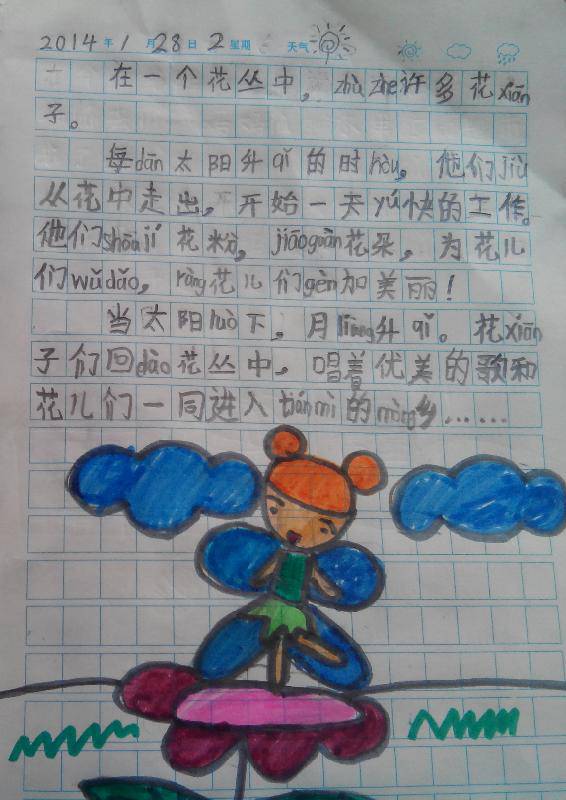 2014年1月28日2星期 天气
在一个花丛中，zhù zhe许多花xiān
子。
每dāng太阳升qǐ的时hòu，他们jiù
从花中走出，开始一天yú快的工作。
他们shōují花粉，jiāoguàn花朵，为花儿
们wǔdǎo，ràng花儿们gèn加美丽！
当太阳luò下，月liàng升qǐ。花xiān
子们回dào花丛中，唱着优美的歌和
花儿们一同进入tiánmì的mèng乡……